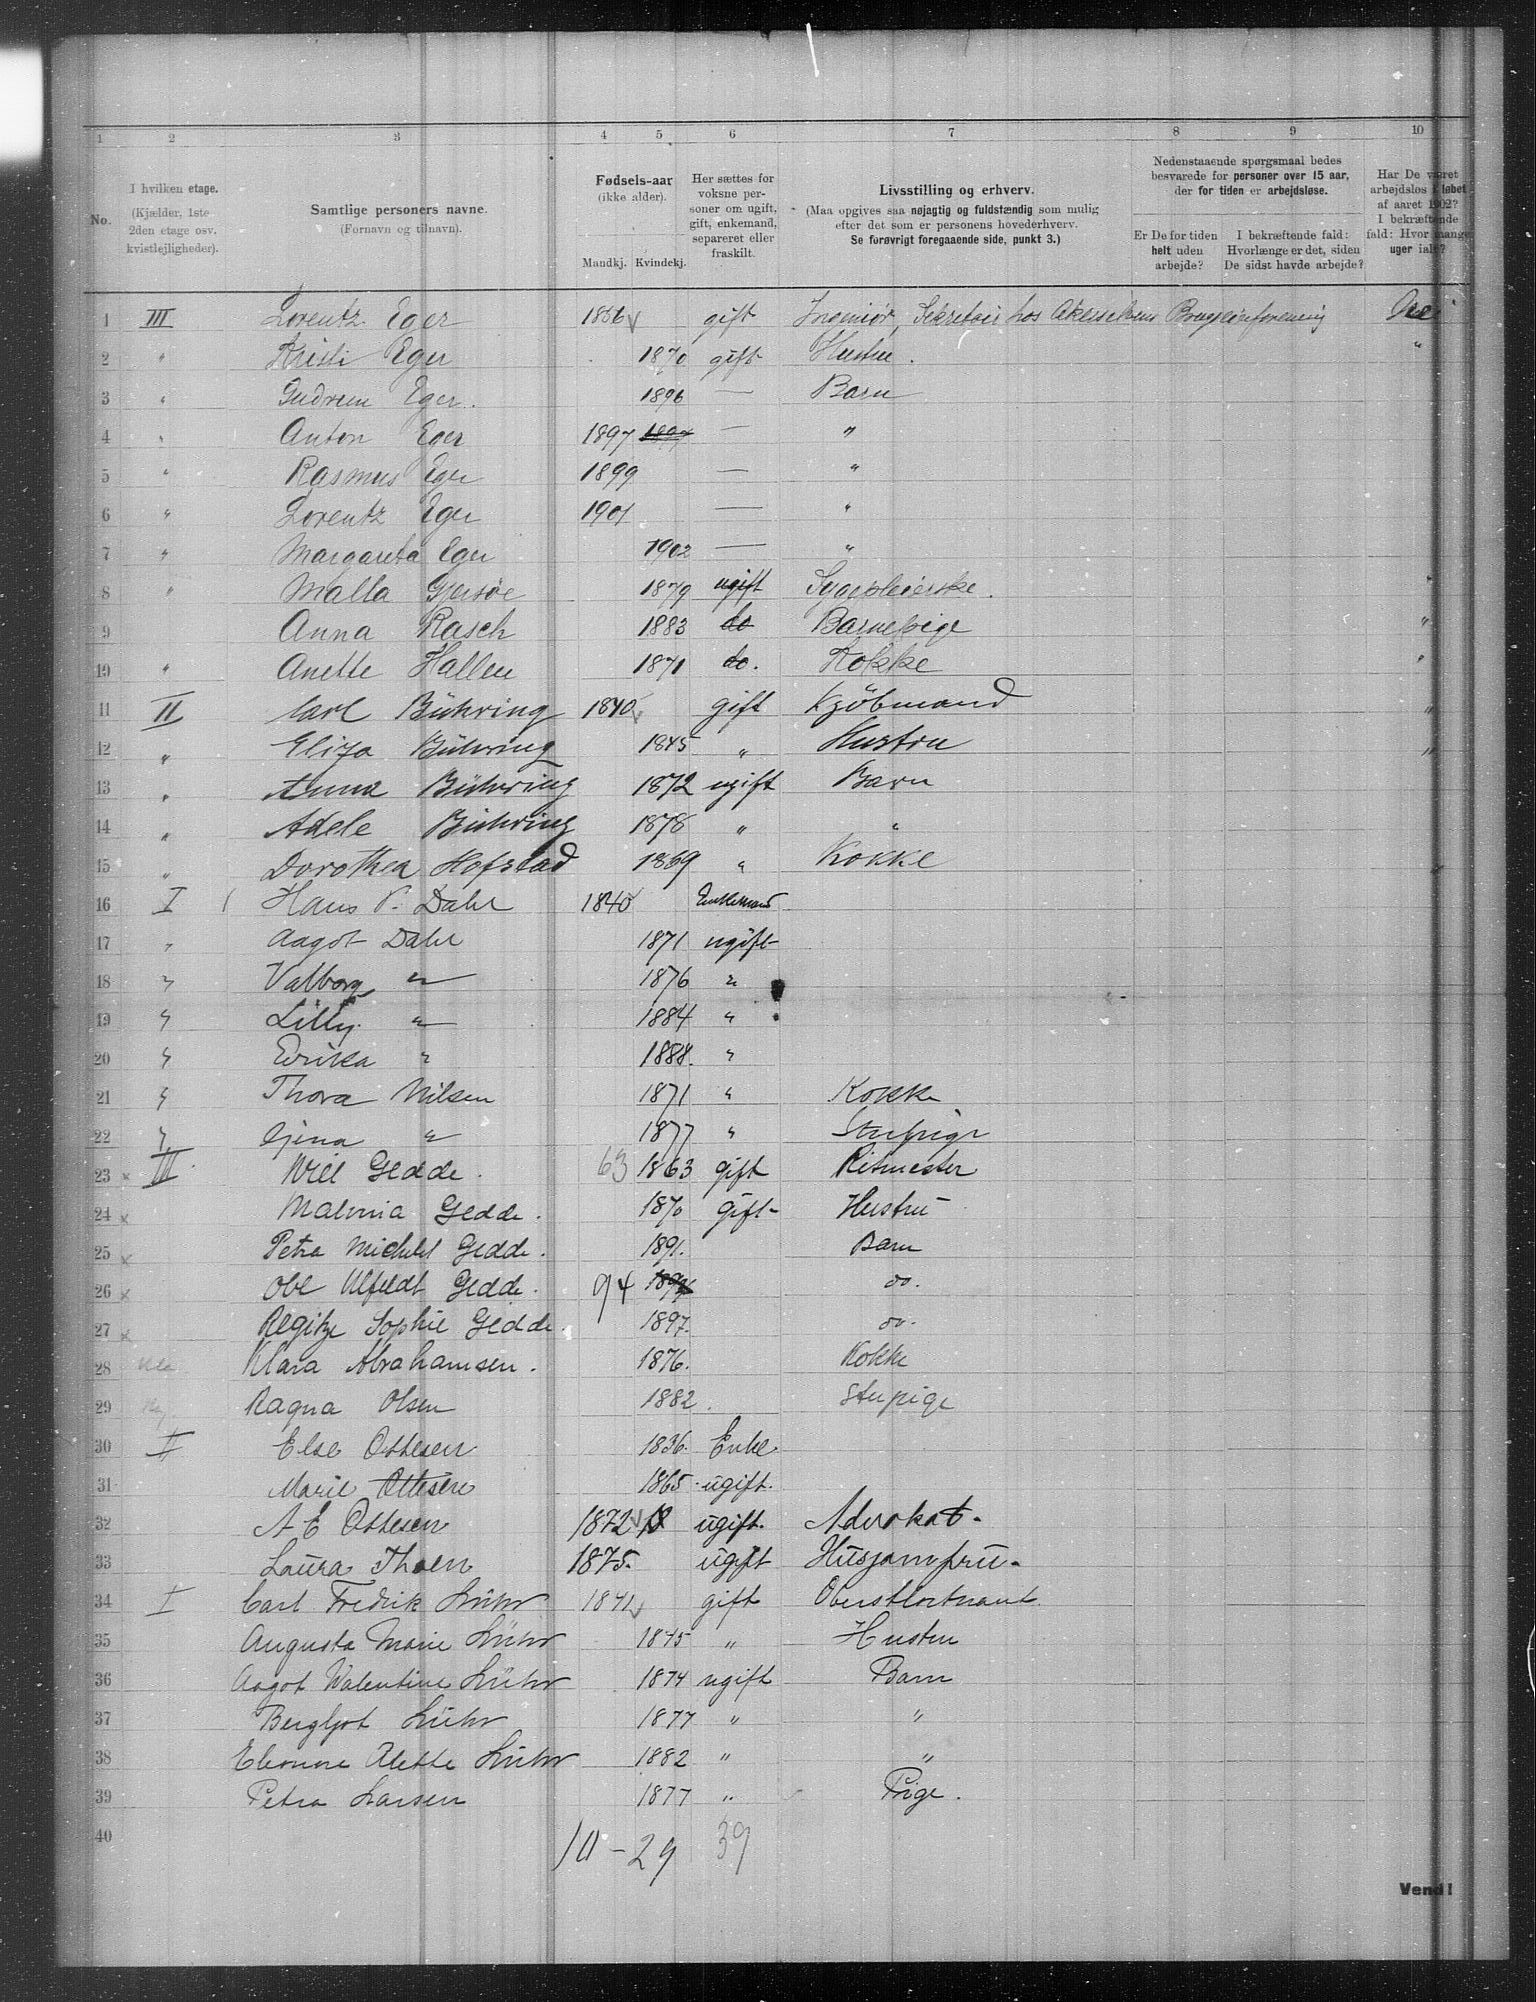 1 2 3 4 5 6 7 8 9 10
No. I hvilken etage. (Kjælder, 1ste 2den etage osv. kvistlejligheder). Samtlige personers navne. (Fornavn og tilnavn). Fødsels-aar (ikke alder). Mandkj. Kvindekj. Her sættes for voksne personer om ugift, gift, enkemand, separeret eller fraskilt. Livsstilling og erhverv. (Maa opgives saa nøjagtig og fuldstændig som mulig efter det som er personens hovederhverv. Se forøvrigt foregaaende side, punkt 3.) Nedenstaaende spørgsmaal bedes besvarede for personer over 15 aar, der for tiden er arbejdsløse. Er De for tiden helt uden arbejde? I bekræftende fald: Hvorlænge er det, siden De sidst havde arbejde? Har De været arbejdsløs i løbet af aaret 1902? I bekræftende fald: Hvor mange uger ialt?
1 III Lorentz Eger 1866 gift Ingeniør, Sekretair hos Akerselvens Brugseierforening Nei
2 " Kristi Eger 1870 gift Hustru. "
3 " Gudrun Eger. 1896 — Barn
4 " Anton Eger 1897 1897 — "
5 " Rasmus Eger 1899 — "
6 " Lorentz Eger 1901 — "
7 " Margareta Eger 1902 — "
8 " Malla Giersøe 1879 ugift Sygepleierske. "
9 Anna Rasch 1883 do Barnepige "
10 " Anette Hallen 1871 do. Kokke "
11 II Carl Bühring 1840 gift Kjöbmand "
12 " Eliza Bühring 1845 " Hustru "
13 " Anna Bühring 1872 ugift Barn
14 " Adele Bühring 1878 " "
15 " Dorothea Hofstad 1869 " Kokke
16 I Hans P. Dahl 1840 Enkemand
17 " Aagot Dahl 1871 ugift
18 " Valborg " 1876 "
19 " Lilly. " 1884 "
20 " Erika " 1888. "
21 " Thora Nilsen 1871 " Kokke
22 " Gina " 1877 " Stupige
23 x III Niel Gedde. 63 1863 gift Ritmester
24 x Malvina Gedde. 1870 gift Hustru
25 x Petra Michelet Gedde. 1891. Barn
26 x Ove Ulfeldt Gedde. 94 1894 do.
27 x Regitze Sophie Gedde. 1897. do.
28 Klara Abrahamsen. 1876. Kokke
29 Ragna Olsen 1882. Stupige
30 II Else Ottesen 1836. Enke.
31 Marie Ottesen 1865. ugift.
32 A E Ottesen 1872 ugift. Advokat.
33 Laura Thoen 1875. ugift Husjomfru.
34 I Carl Fredrik Lühr 1841 gift Oberstløitnant.
35 Augusta Marie Lühr 1845 " Hustru
36 Aagot Valentine Lühr 1874 ugift Barn
37 Bergljot Lühr 1877 " "
38 Eleonore Alette Lühr 1882 " "
39 Petra Larsen 1877 " Pige.
40
10 - 29 39
Vend!